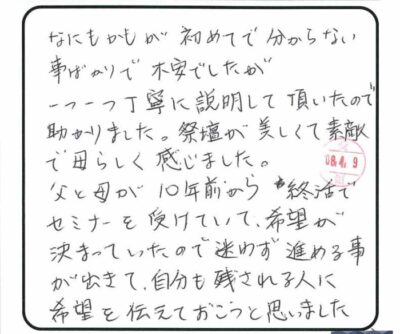 なにもかもが 初めてで 分からない
事ばかりで 不安でしたが
一つ一つ丁寧に説明して頂いたので
助かりました。祭壇が美しくて素敵
で母らしく感じました。
父と母が10年前から 終活で
セミナーを受けていて、希望が
決まっていったので迷わず進める事
が出きて、自分も残される人に
希望を伝えておこうと思いました